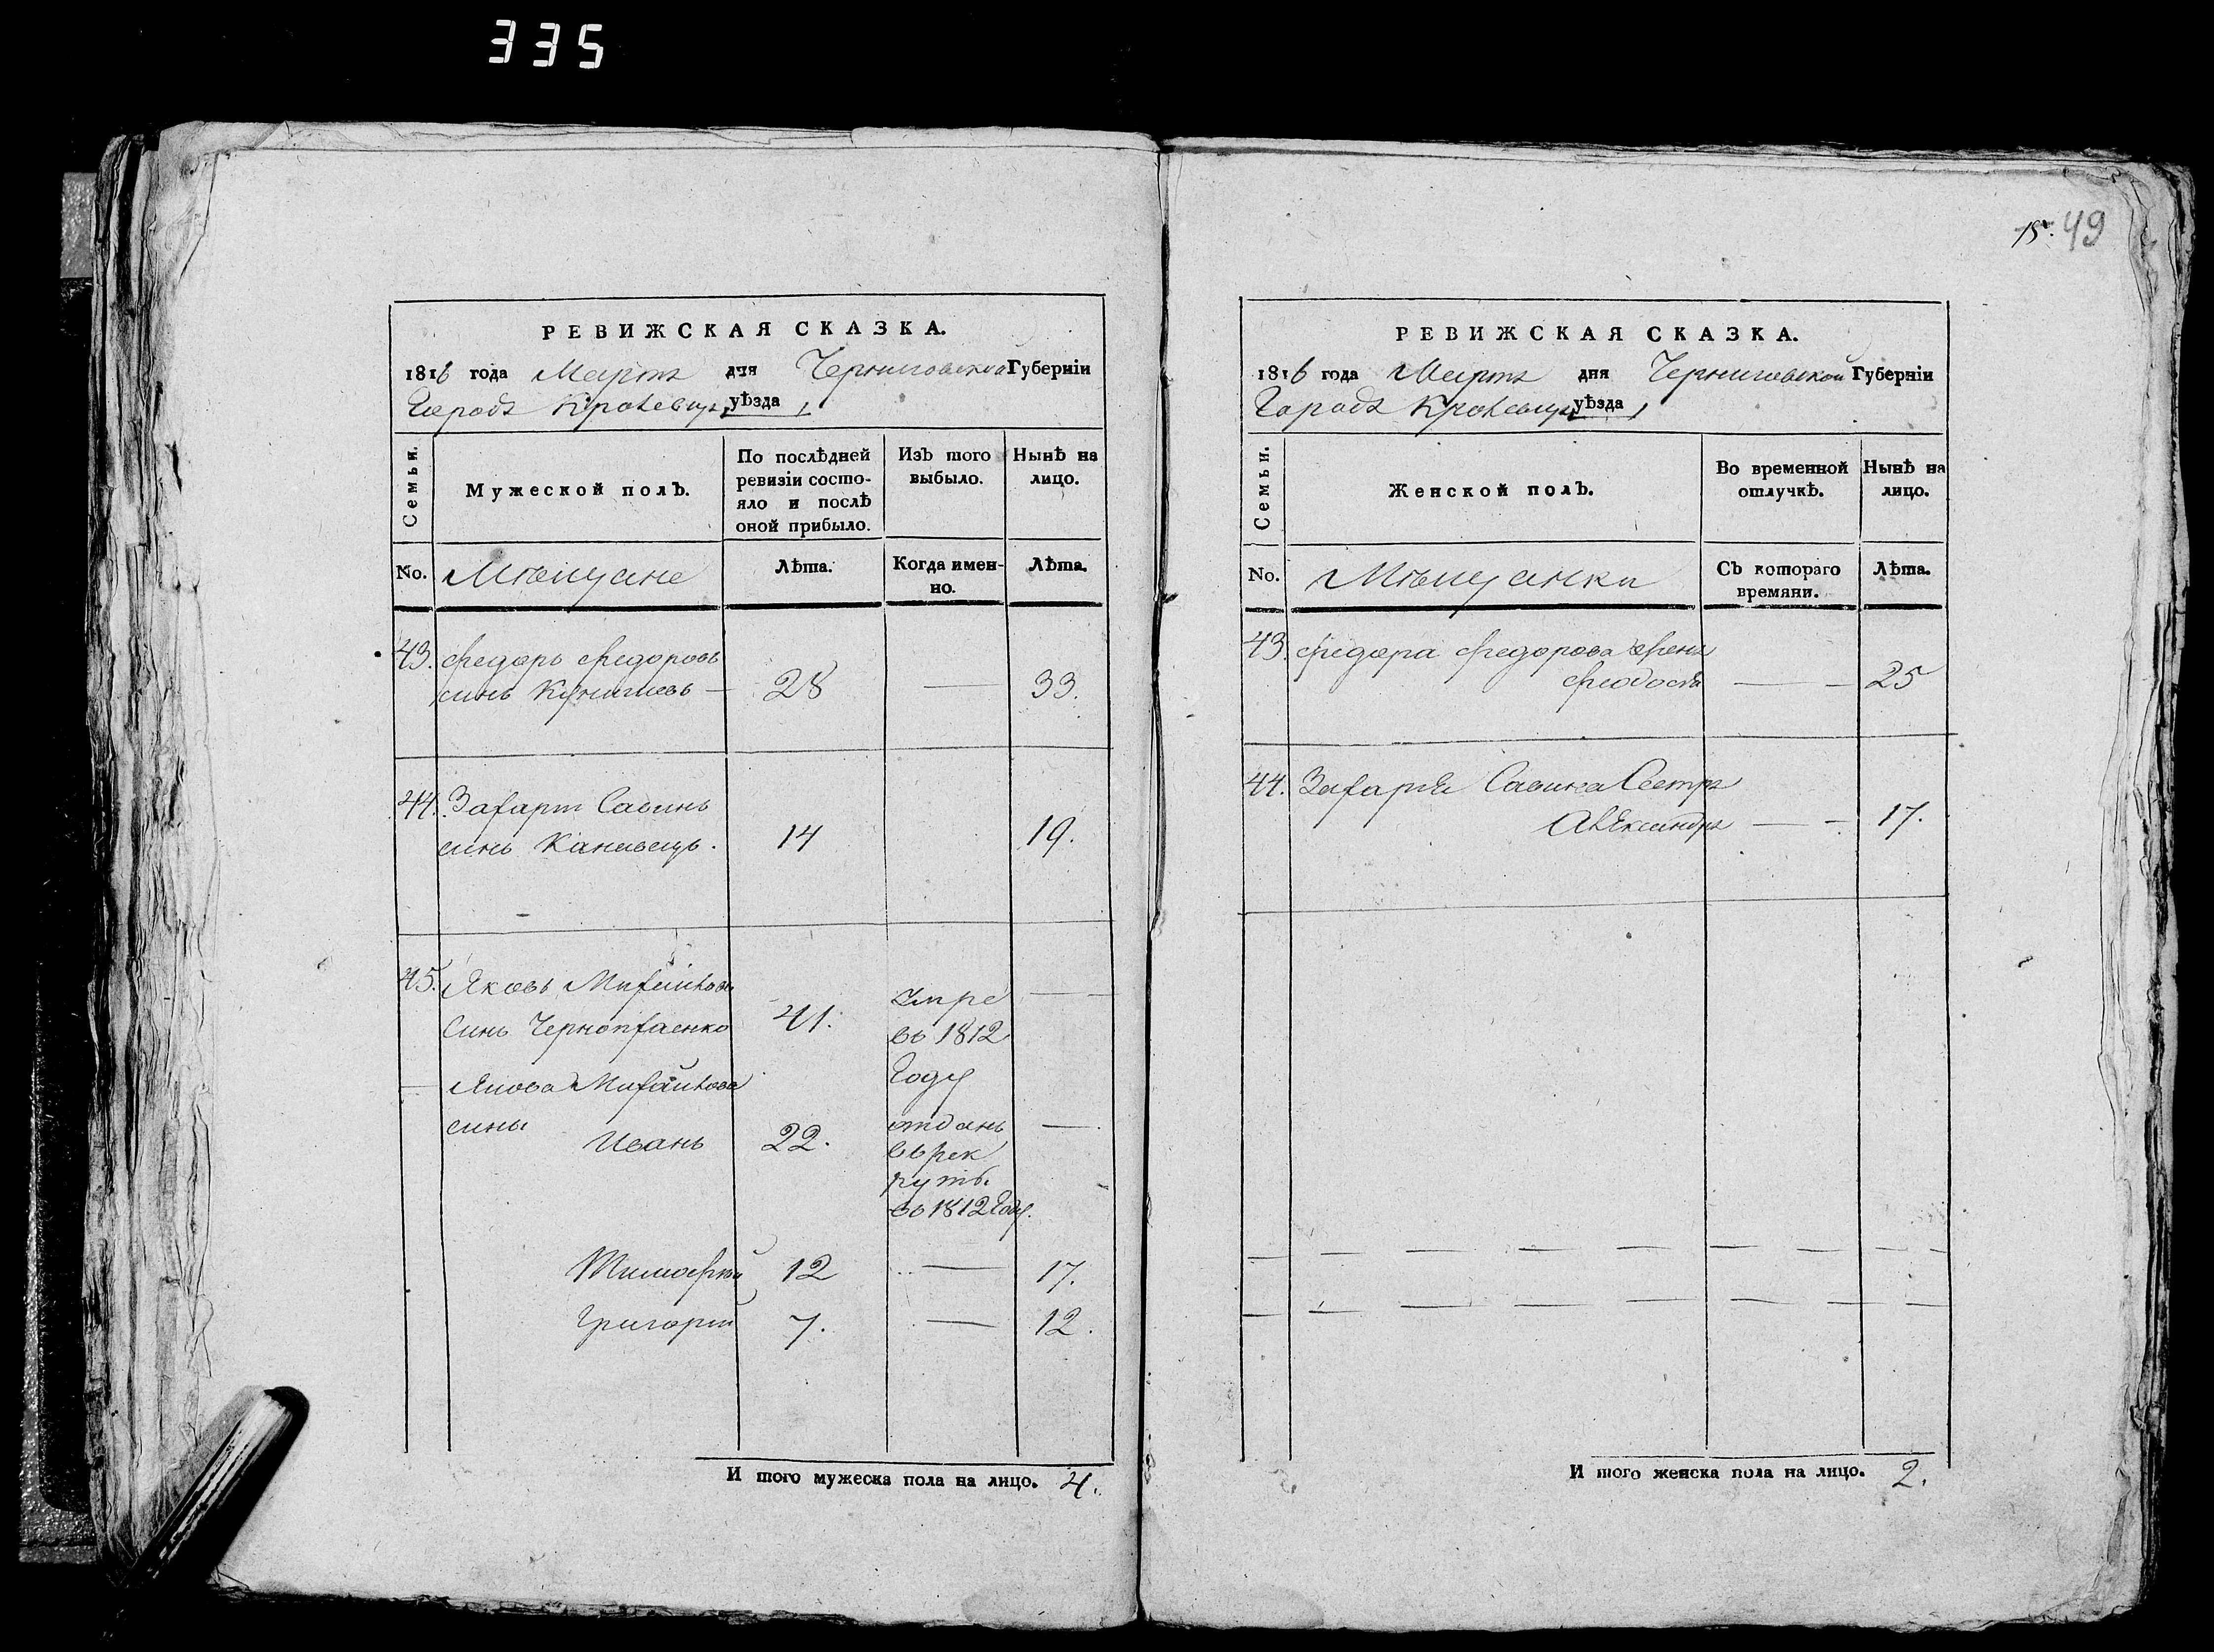 335
15. 49
РЕВИЖСКАЯ СКАЗКА.
1816 года Марта дня Черниговской Губерніи
Города Кролевца уѣзда
Семьи.
Мужеской полЪ.
По послѣдней ревизіи состо-
яло и послѣ
оной прибыло.
ИзЪ того
выбыло.
Нынѣ на
лицо.
No.
Мѣщане
Лѣта.
Когда имен-
но.
Лѣта.
43. Федоръ Федоровъ
синъ — 28 — 33.
44. Захарій Савинъ
синъ Каневецъ. 14 19.
45. Яковъ Михайловъ
синъ 41. умре —
въ 1812
Году
— Якова Михайлова
сины
Иванъ 22. отданъ —
въ рек
руты
въ 1812 Году.
Тимофей 12 — 17.
Григорій 7. — 12.
И того мужеска пола на лицо. 4.
РЕВИЖСКАЯ СКАЗКА.
1816 года Марта дня Черниговской Губерніи
Города Кролевца уѣзда
Семьи.
Женской полЪ.
Во временной
отлучкѣ.
Нынѣ на
лицо.
No.
Мѣщанки
СЪ котораго
времяни.
Лѣта.
43. Федора Федорова жена
Феодосія — 25
44. Захарія Савина Сестра
Александра — 17.
И того женска пола на лицо. 2.